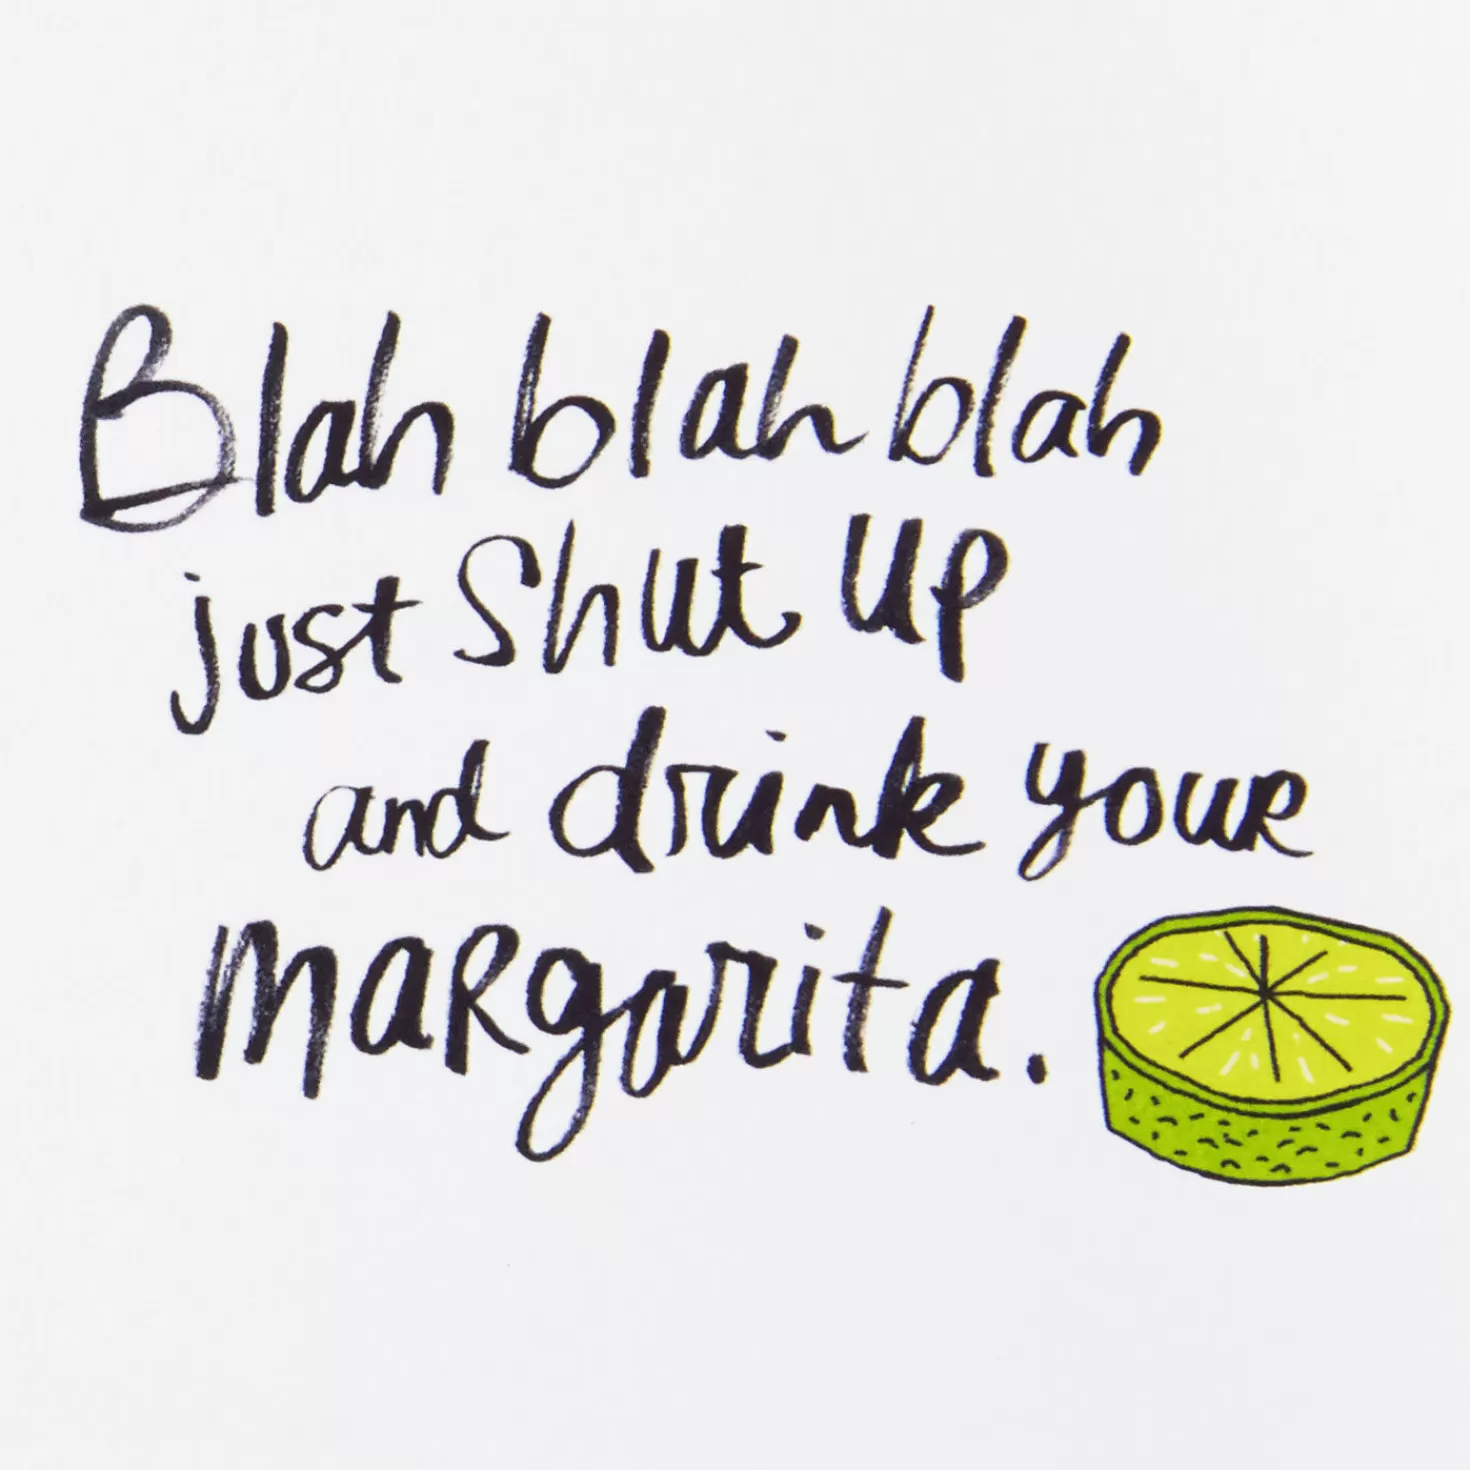 Blah blah blah
just Shut Up
and drink your
margarita.